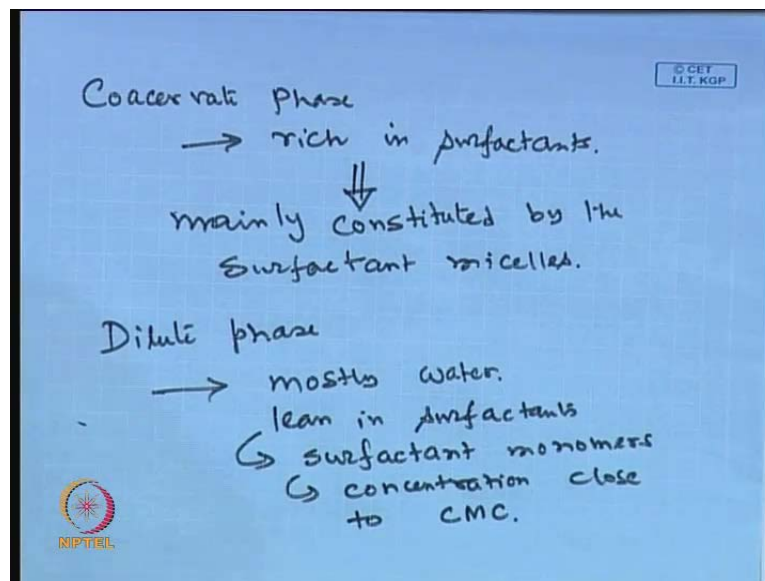 © CET
I.I.T. KGP
Coacervate phase
→ rich in surfactants.
⇓
mainly constituted by the
surfactant micelles.
Dilute phase
→ mostly water.
lean in surfactants
↳ surfactant monomers
↳ concentration close
to CMC.
NPTEL